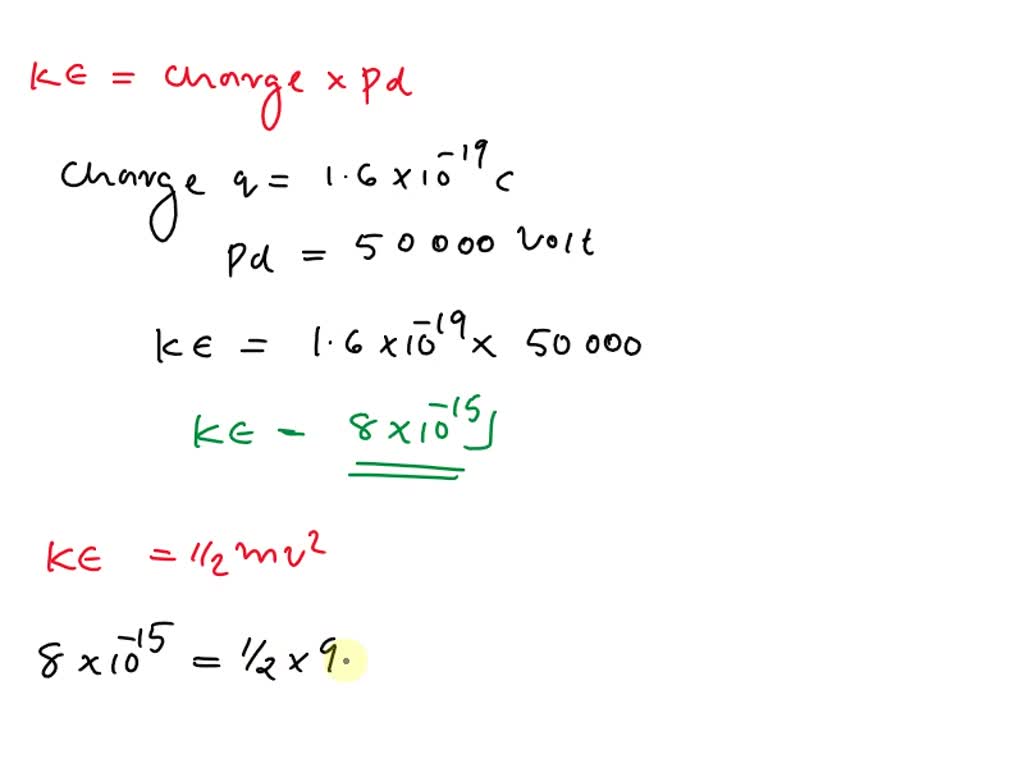 KE = charge × Pd
Charge q = 1.6 × 10⁻¹⁹ C
Pd = 50 000 Volt
KE = 1.6 × 10⁻¹⁹ × 50 000
KE - 8 × 10⁻¹⁵ J
KE = 1/2 mv²
8 × 10⁻¹⁵ = 1/2 × 9.